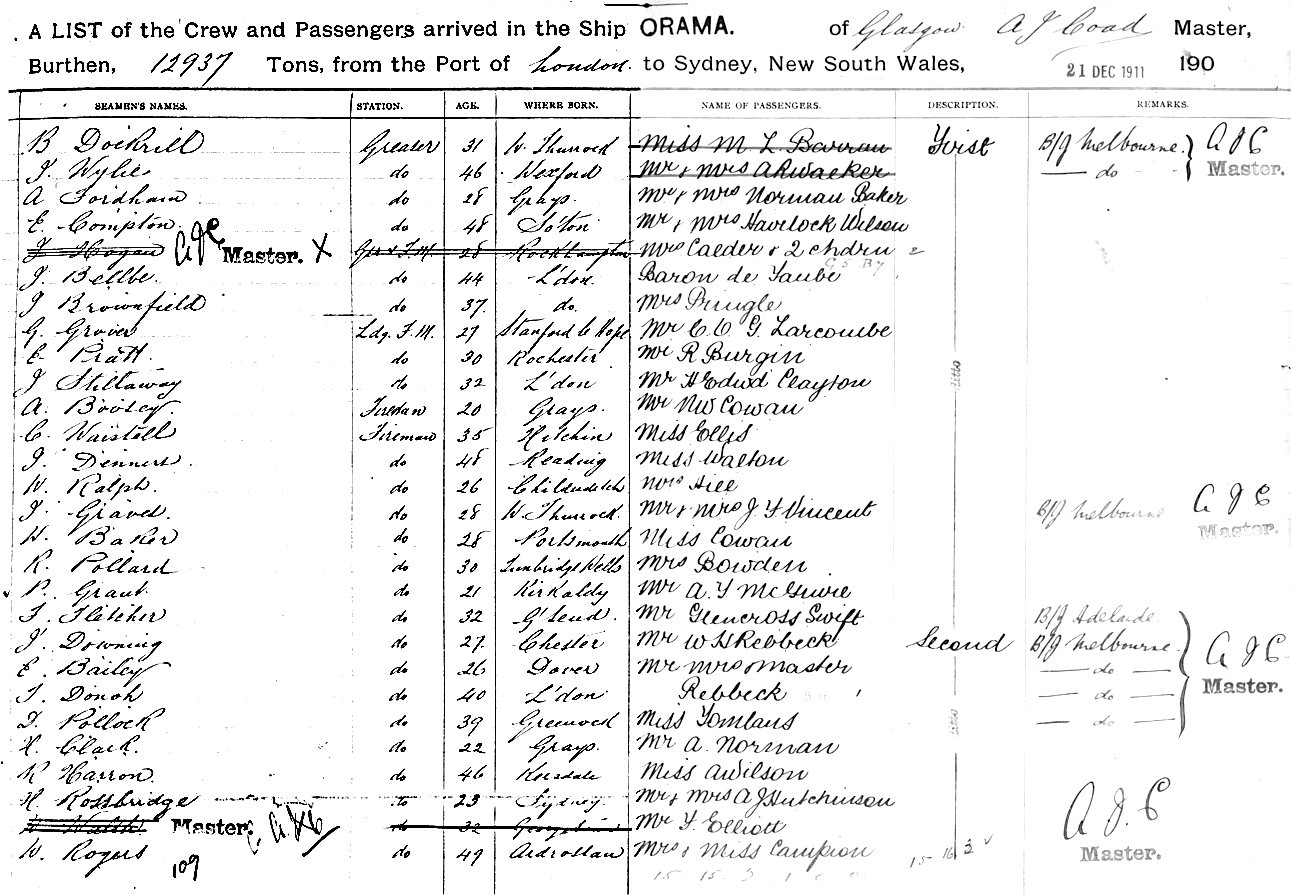 A LIST of the Crew and Passengers arrived in the Ship ORAMA. of Glasgow A J Coad Master,
Burthen, 12937 Tons, from the Port of London to Sydney, New South Wales, 21 DEC 1911 190
SEAMEN'S NAMES. STATION. AGE. WHERE BORN. NAME OF PASSENGERS. DESCRIPTION. REMARKS.
B Dockrill Greaser 31 W. Thurrock Miss M L Barrau First B/J Melbourne. A J C
J Wylie do 46 Wexford Mr & Mrs do Master.
A Fordham do 28 Grays. Mr & Mrs Norman Baker
E. Compton. do 48 So'ton Mr & Mrs Havilock Wilson
J Hogan AJC Master. X 28 Rockhampton Mrs Calder & 2 chdrn 2
J. Bellbe. do 44 L'don. Baron de Taube
J Brownfield do 37. do. Mrs Pringle
G. Grover Ldg. F.M. 27 Stanford le Hope Mr C. G. Larcombe
E. Pratt. do 30 Rochester Mr R Burgin
J Stiltaway do 32 L'don Mr H Edwd Clayton
A. Boosey. Fireman 20 Grays. Mr NW Cowan
C. Waistell Fireman 35 Hitchin Miss Ellis
J. Denners. do 48 Reading Miss Walton
W. Ralph. do 26 Childerditch Mrs Hill
J. Graves. do 28 W. Thurrock. Mr & Mrs J Y Vincent B/J Melbourne A J C
W. Baker do 28 Portsmouth Miss Cowan Master.
R. Pollard do 30 Tunbridge Wells Mrs Bowden
P. Grant. do 21 Kirkaldy Mr A. Y McGuire
T. Fletcher do 32 G'send. Mr Glencross Swift B/J Adelaide
J. Downing do 27. Chester Mr W H Rebbeck Second B/J Melbourne. A J C
E. Bailey do 26 Dover Mr Mrs & Master do Master.
T. Donoh do 40 L'don Rebbeck do
D. Pollock do 39 Greenock Miss Tomlans do
H. Clark. do 22 Grays. Mr A. Norman
R Harron. do 46 Miss A Wilson
H Rossbridge do 23 Sydney. Mr & Mrs A J Hutchinson A J. C
W Walsh Master. do 32 Mr Y. Elliott
W. Rogers do 49 Ardrossan Mrs & Miss Campion 15 16 3 Master.
109